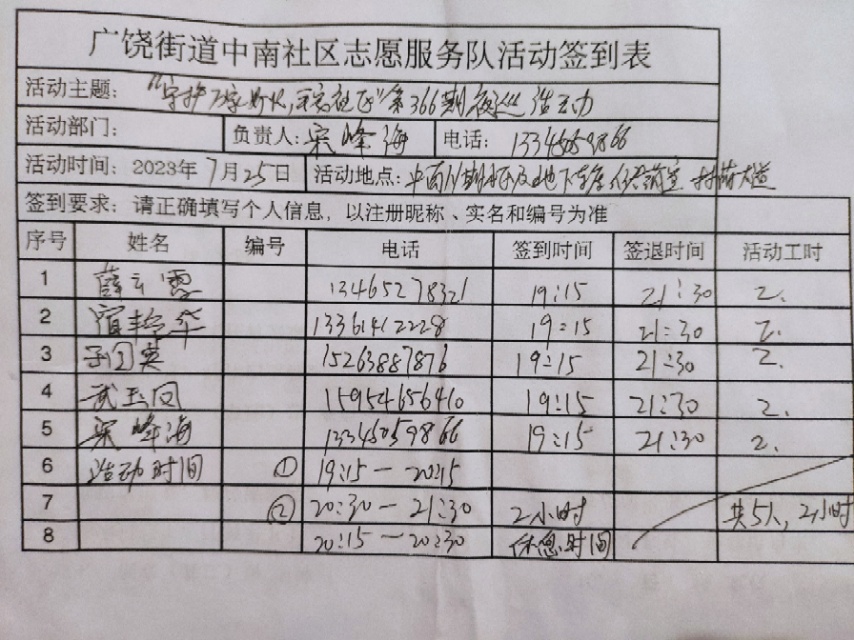 广饶街道中南社区志愿服务队活动签到表
活动主题: "守护万家灯火, 平安社区"第366期夜巡活动
活动部门: 负责人: 宋峰海 电话: 13345059866
活动时间: 2023年7月25日 活动地点: 中南 期 及地下车库 大道
签到要求: 请正确填写个人信息, 以注册昵称、实名和编号为准
序号 姓名 编号 电话 签到时间 签退时间 活动工时
1 薛云霞 13465278321 19:15 21:30 2.
2 华 13361412228 19:15 21:30 2.
3 国英 15263887876 19:15 21:30 2.
4 武玉国 15954656410 19:15 21:30 2.
5 宋峰海 13345059866 19:15 21:30 2.
6 活动时间 ① 19:15-20:15
7 ② 20:30-21:30 2小时 共5人, 2小时
8 20:15-20:30 休息时间